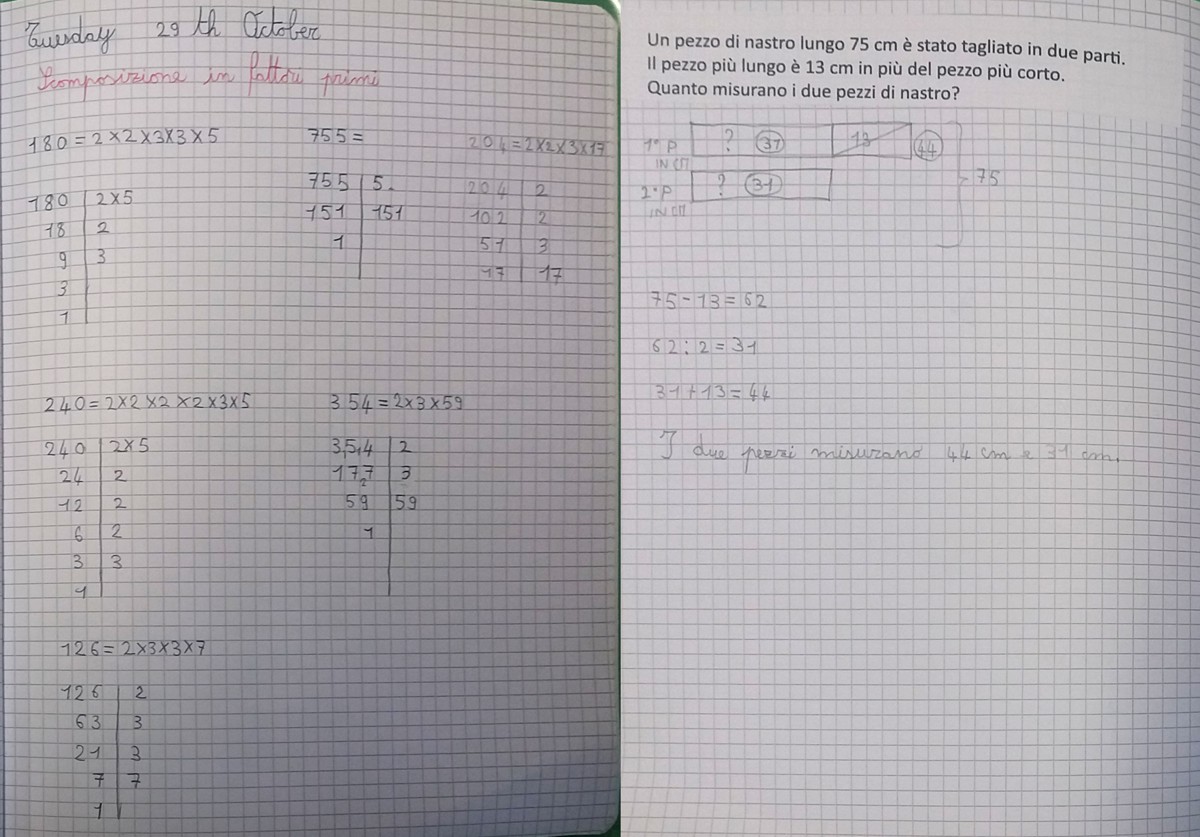 Tuesday 29 th October
Scomposizione in fattori primi
180 = 2x2x3x3x5
180 | 2x5
18 | 2
9 | 3
3
1
755 =
755 | 5
151 | 151
1
204 = 2x2x3x17
204 | 2
102 | 2
51 | 3
17 | 17
240 = 2x2x2x2x3x5
240 | 2x5
24 | 2
12 | 2
6 | 2
3 | 3
1
354 = 2x3x59
3,5,4 | 2
17,27 | 3
59 | 59
1
126 = 2x3x3x7
126 | 2
63 | 3
21 | 3
7 | 7
1
Un pezzo di nastro lungo 75 cm è stato tagliato in due parti.
Il pezzo più lungo è 13 cm in più del pezzo più corto.
Quanto misurano i due pezzi di nastro?
1° P ? 31 13 44
IN CM
75
2° P ? 31
IN CM
75 - 13 = 62
62 : 2 = 31
31 + 13 = 44
I due pezzi misurano 44 cm e 31 cm.